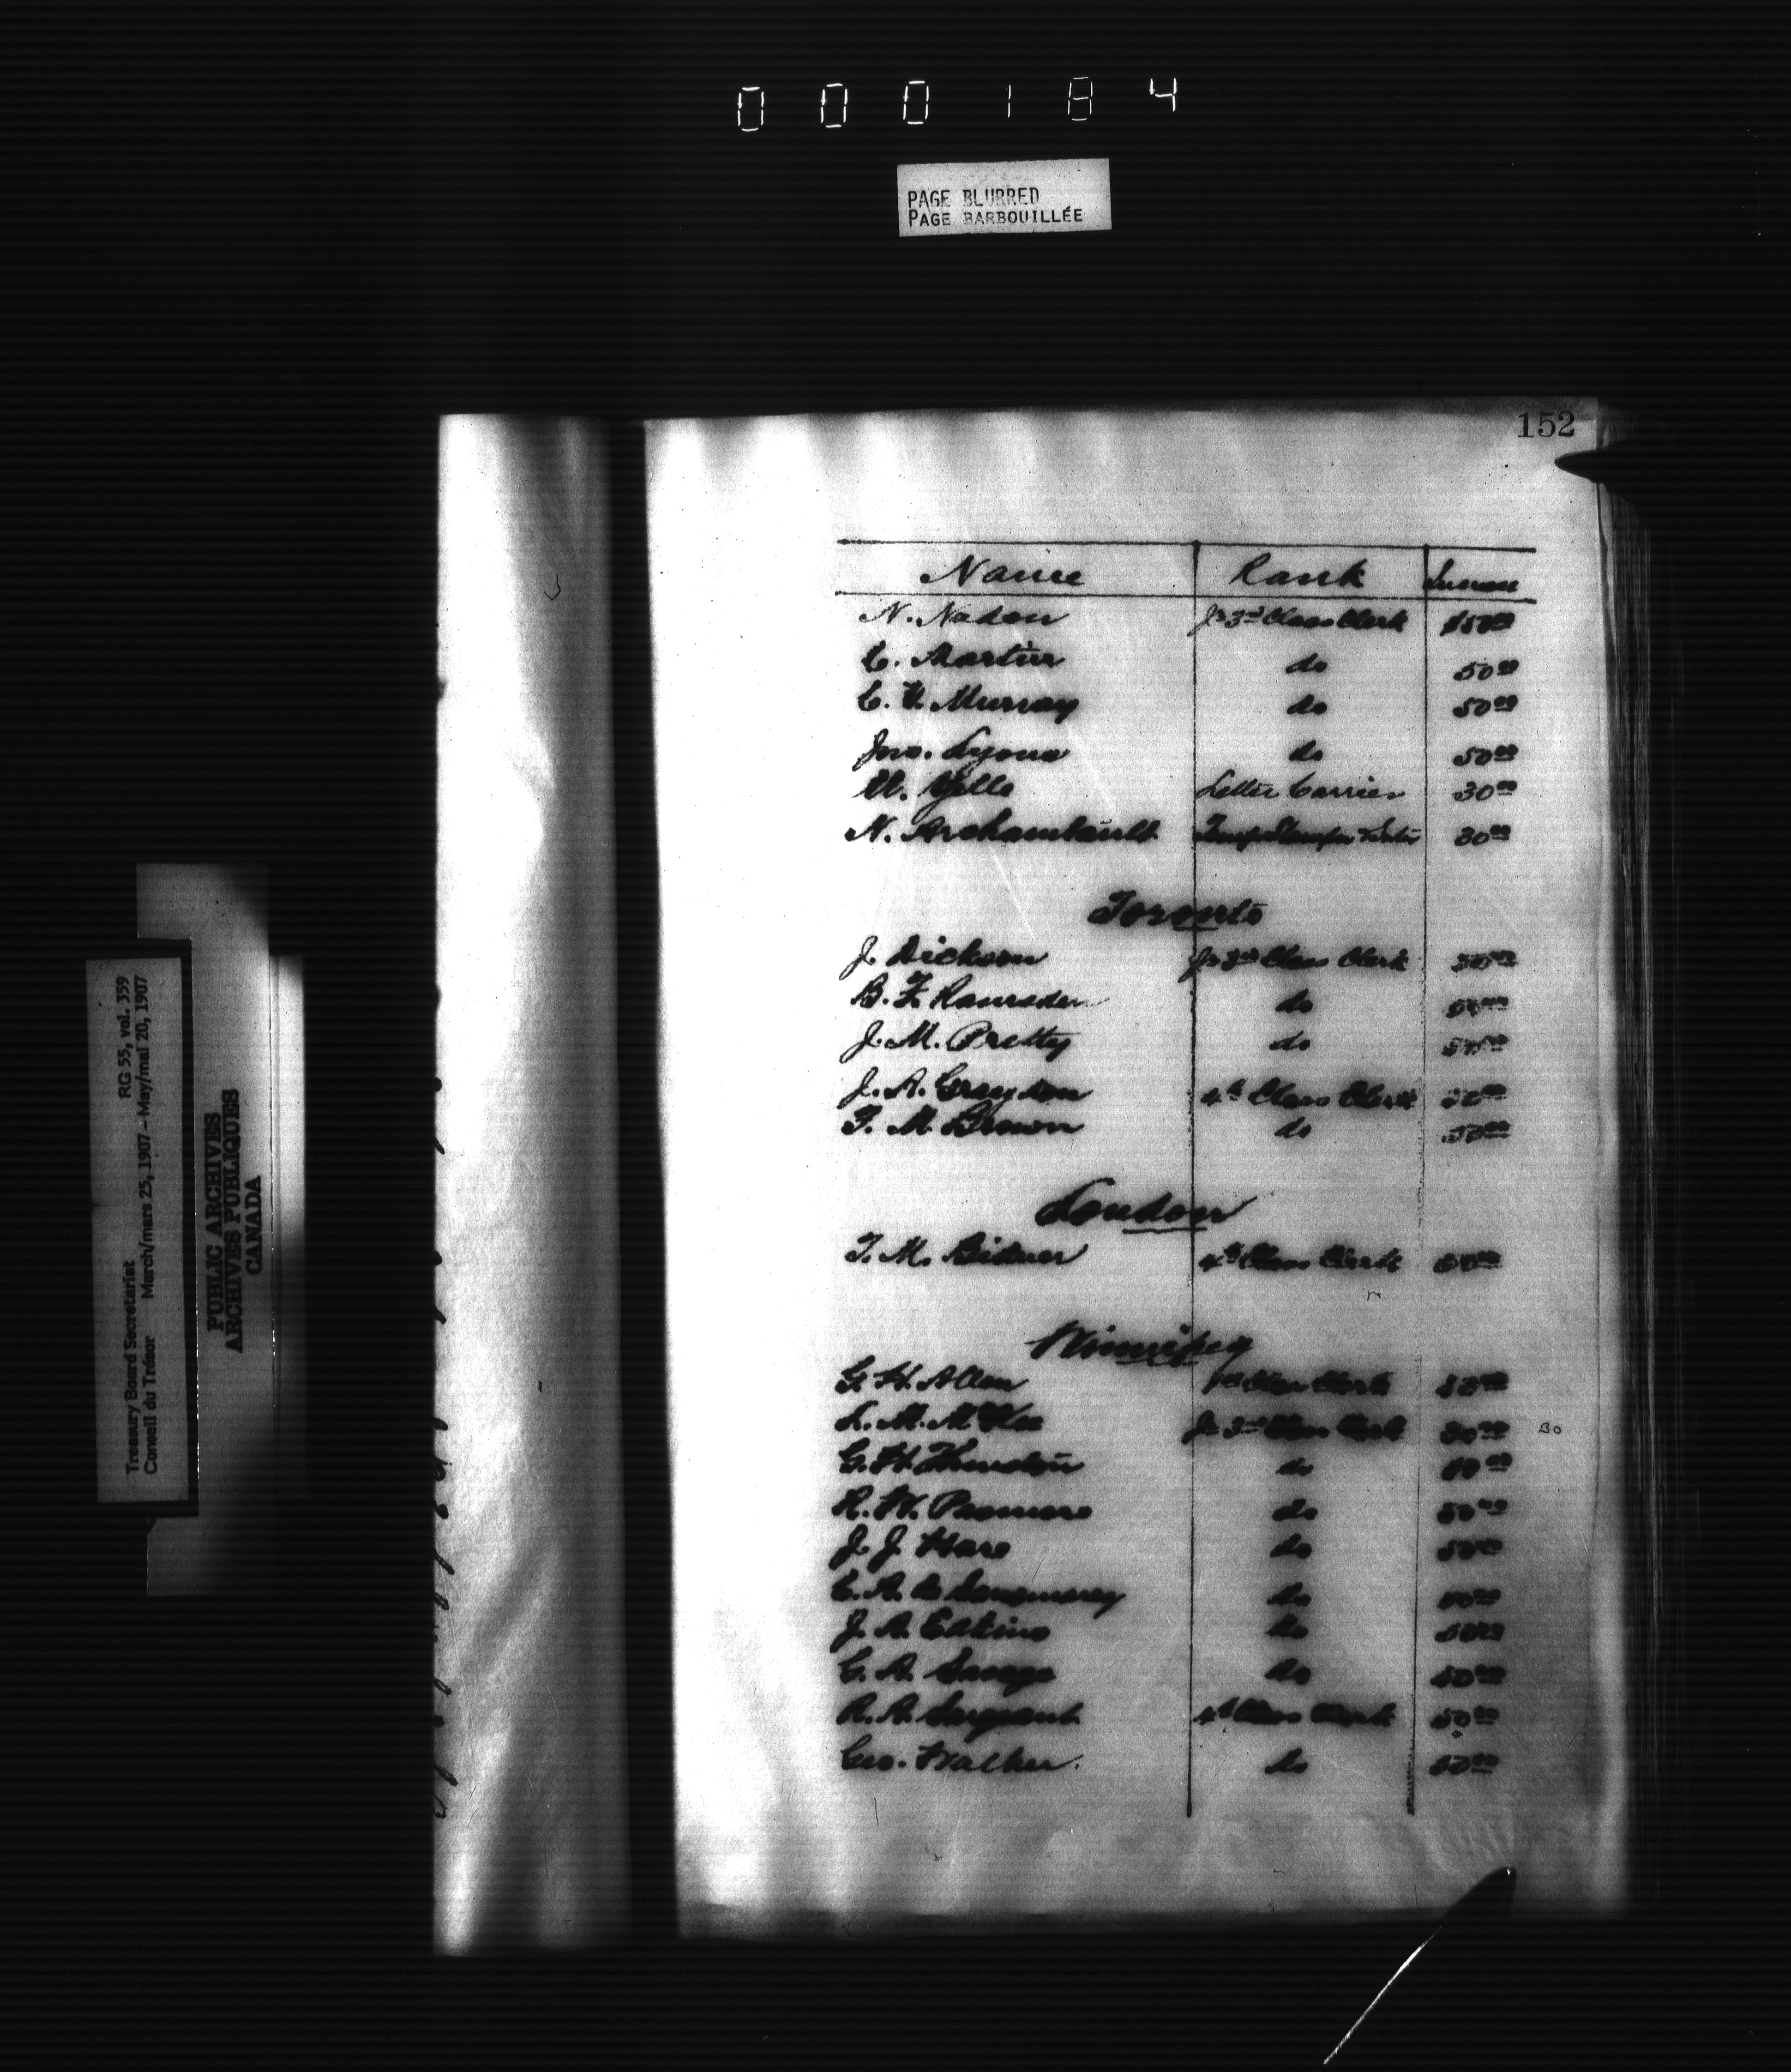 000184
PAGE BLURRED
PAGE BARBOUILLÉE
152
Name Rank Increase
N. Nadon Jr 3rd Class Clerk $50 00
C. Martin do 50 00
C. V. Murray do 50 00
Jno. Lyons do 50 00
U. Yelle Letter Carrier 30 00
N. Archambault 30 00
Toronto
J. Dickson Jr 3rd Class Clerk 50 00
B. F. Ramsden do 50 00
J. M. Pretty do 50 00
J. A. Graydon 4th Class Clerk 50 00
F. M. Brown do 50 00
London
T. M. 4th Class Clerk 50 00
Winnipeg
G. H. Allen Class Clerk 50 00
L. M. McKee Jr 3rd Class Clerk 30 00 30
G. H. do 50 00
R. W. do 50 00
J. J. Hare do 50 00
C. A. de do 50 00
J. A. Eakins do 50 00
G. A. Savage do 50 00
R. A. Sargeant 4th Class Clerk 50 00
Geo. Walker. do 50 00
Treasury Board Secretariat RG 55, vol. 359
Conseil du Trésor March/mars 25, 1907 - May/mai 20, 1907
PUBLIC ARCHIVES
ARCHIVES PUBLIQUES
CANADA